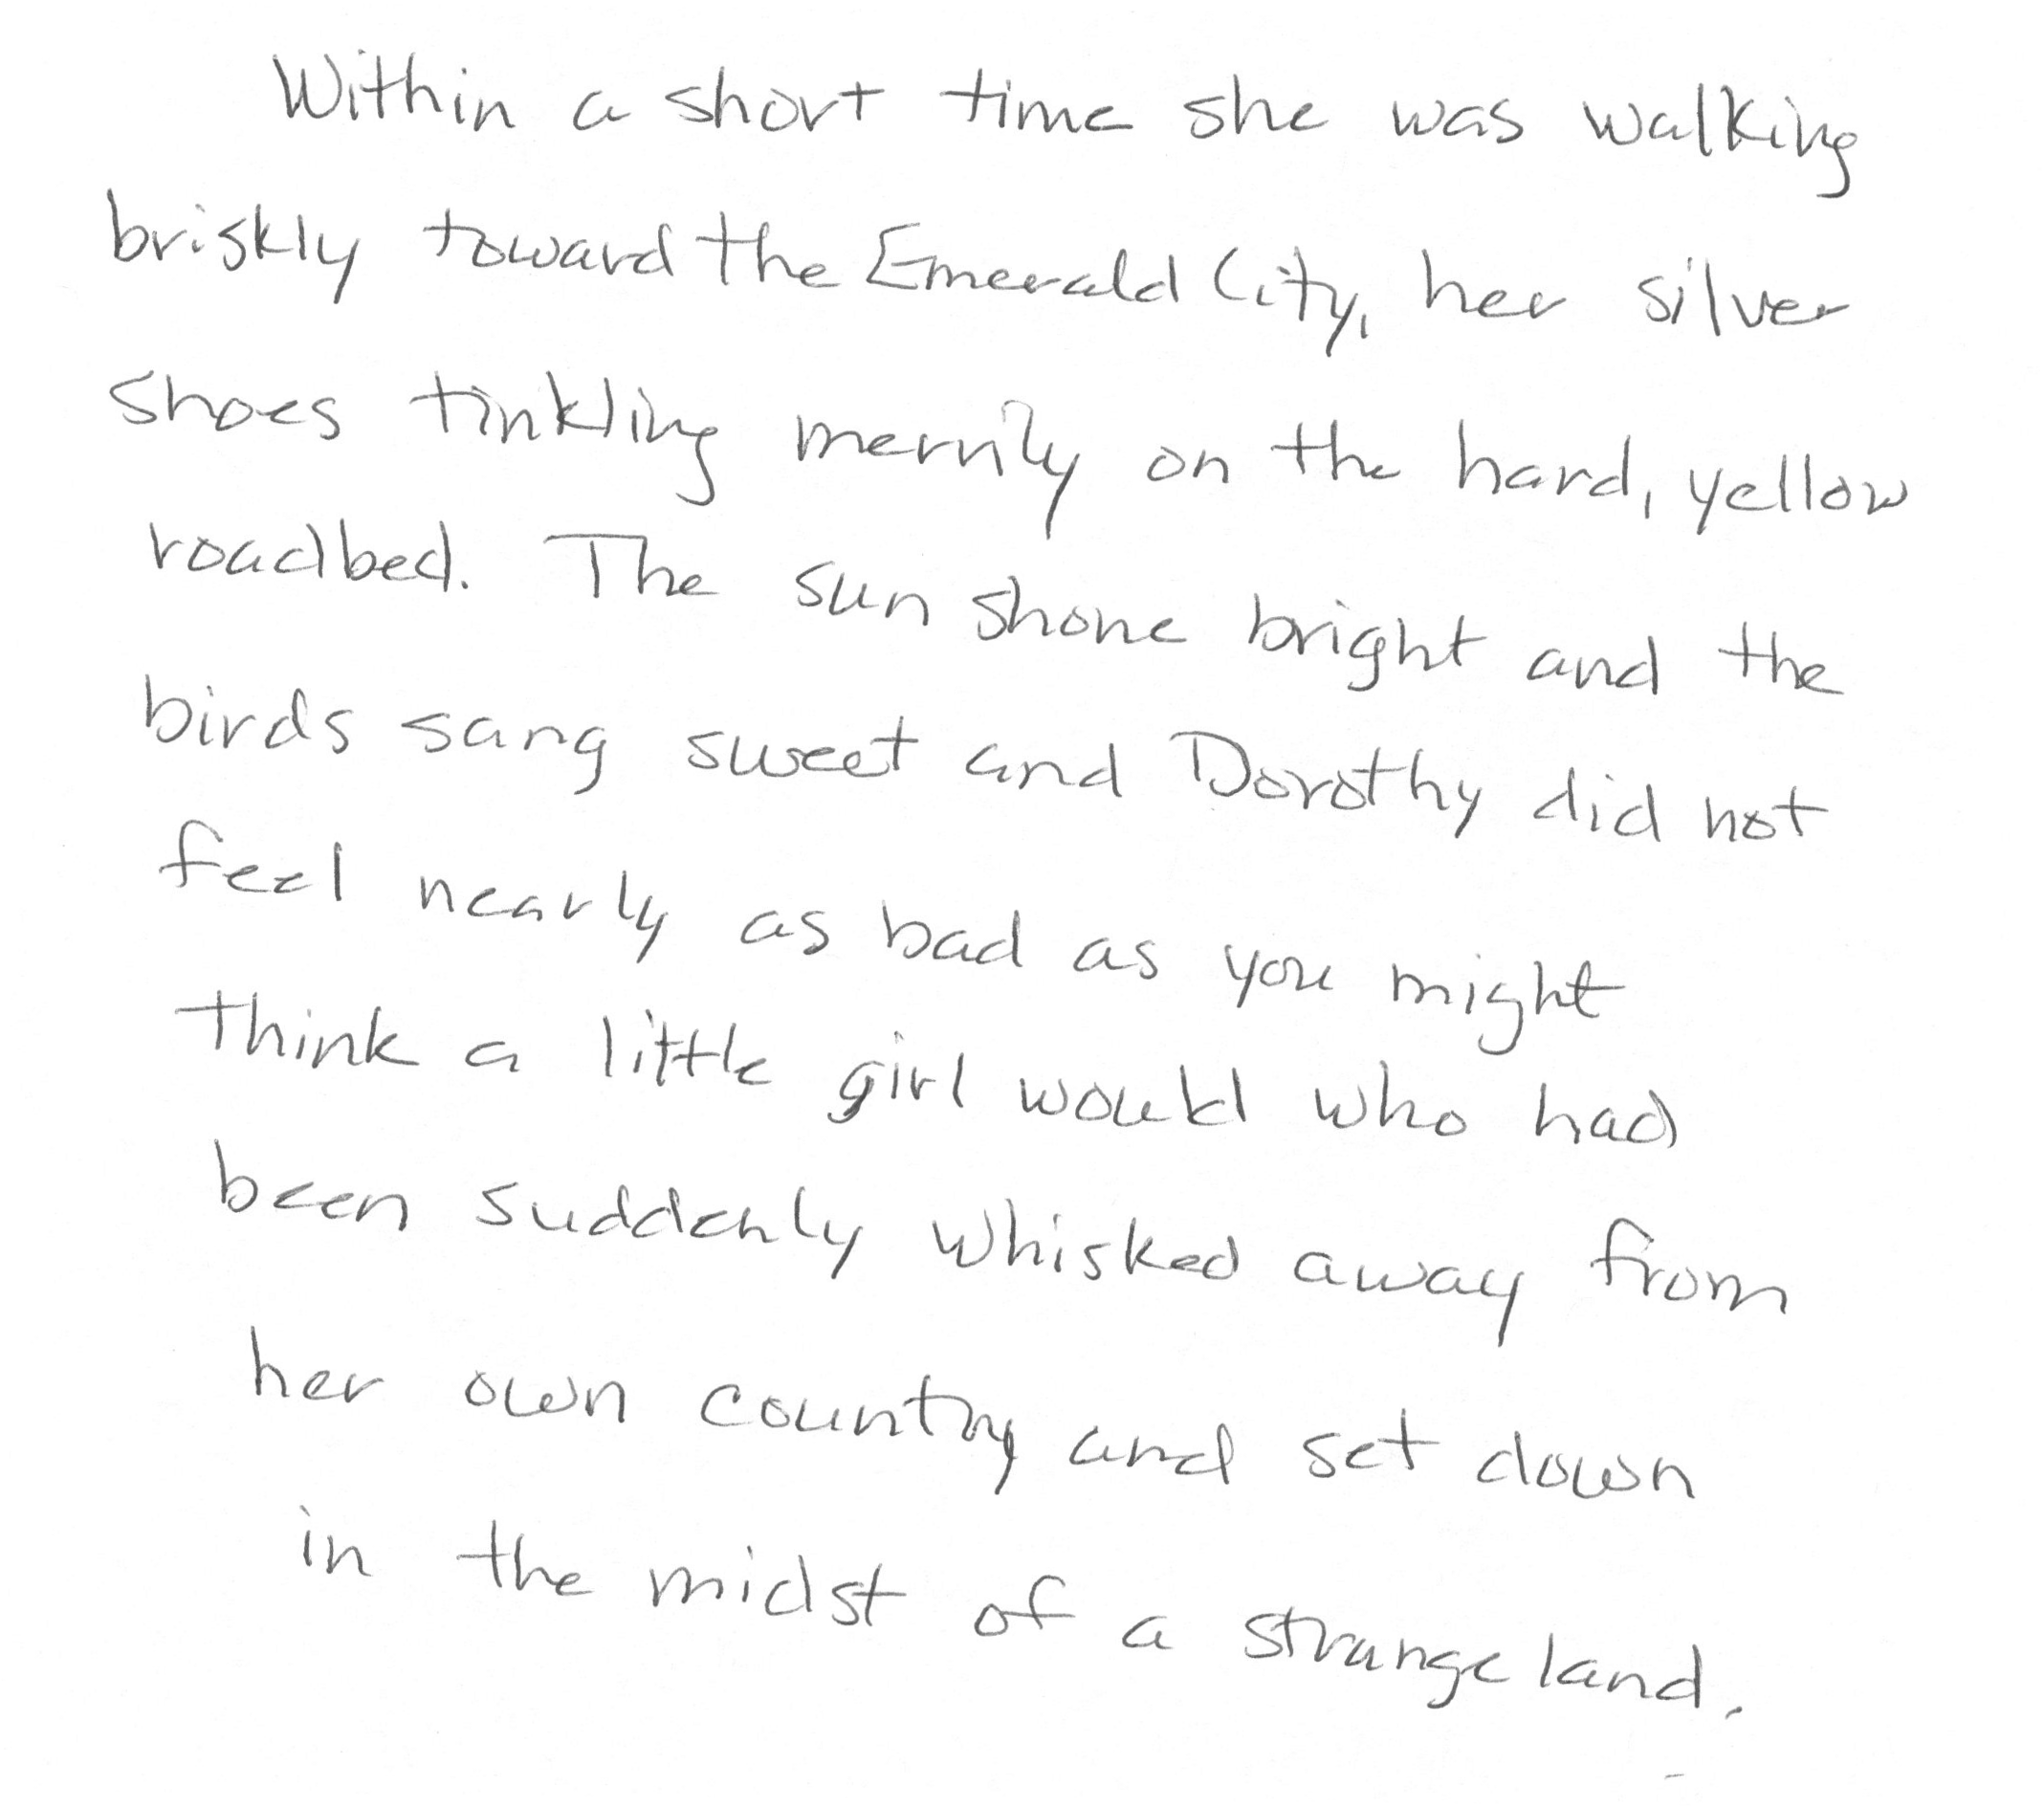 Within a short time she was walking
briskly toward the Emerald City, her silver
shoes tinkling merrily on the hard, yellow
roadbed. The sun shone bright and the
birds sang sweet and Dorothy did not
feel nearly as bad as you might
think a little girl would who had
been suddenly whisked away from
her own country and set down
in the midst of a strange land.